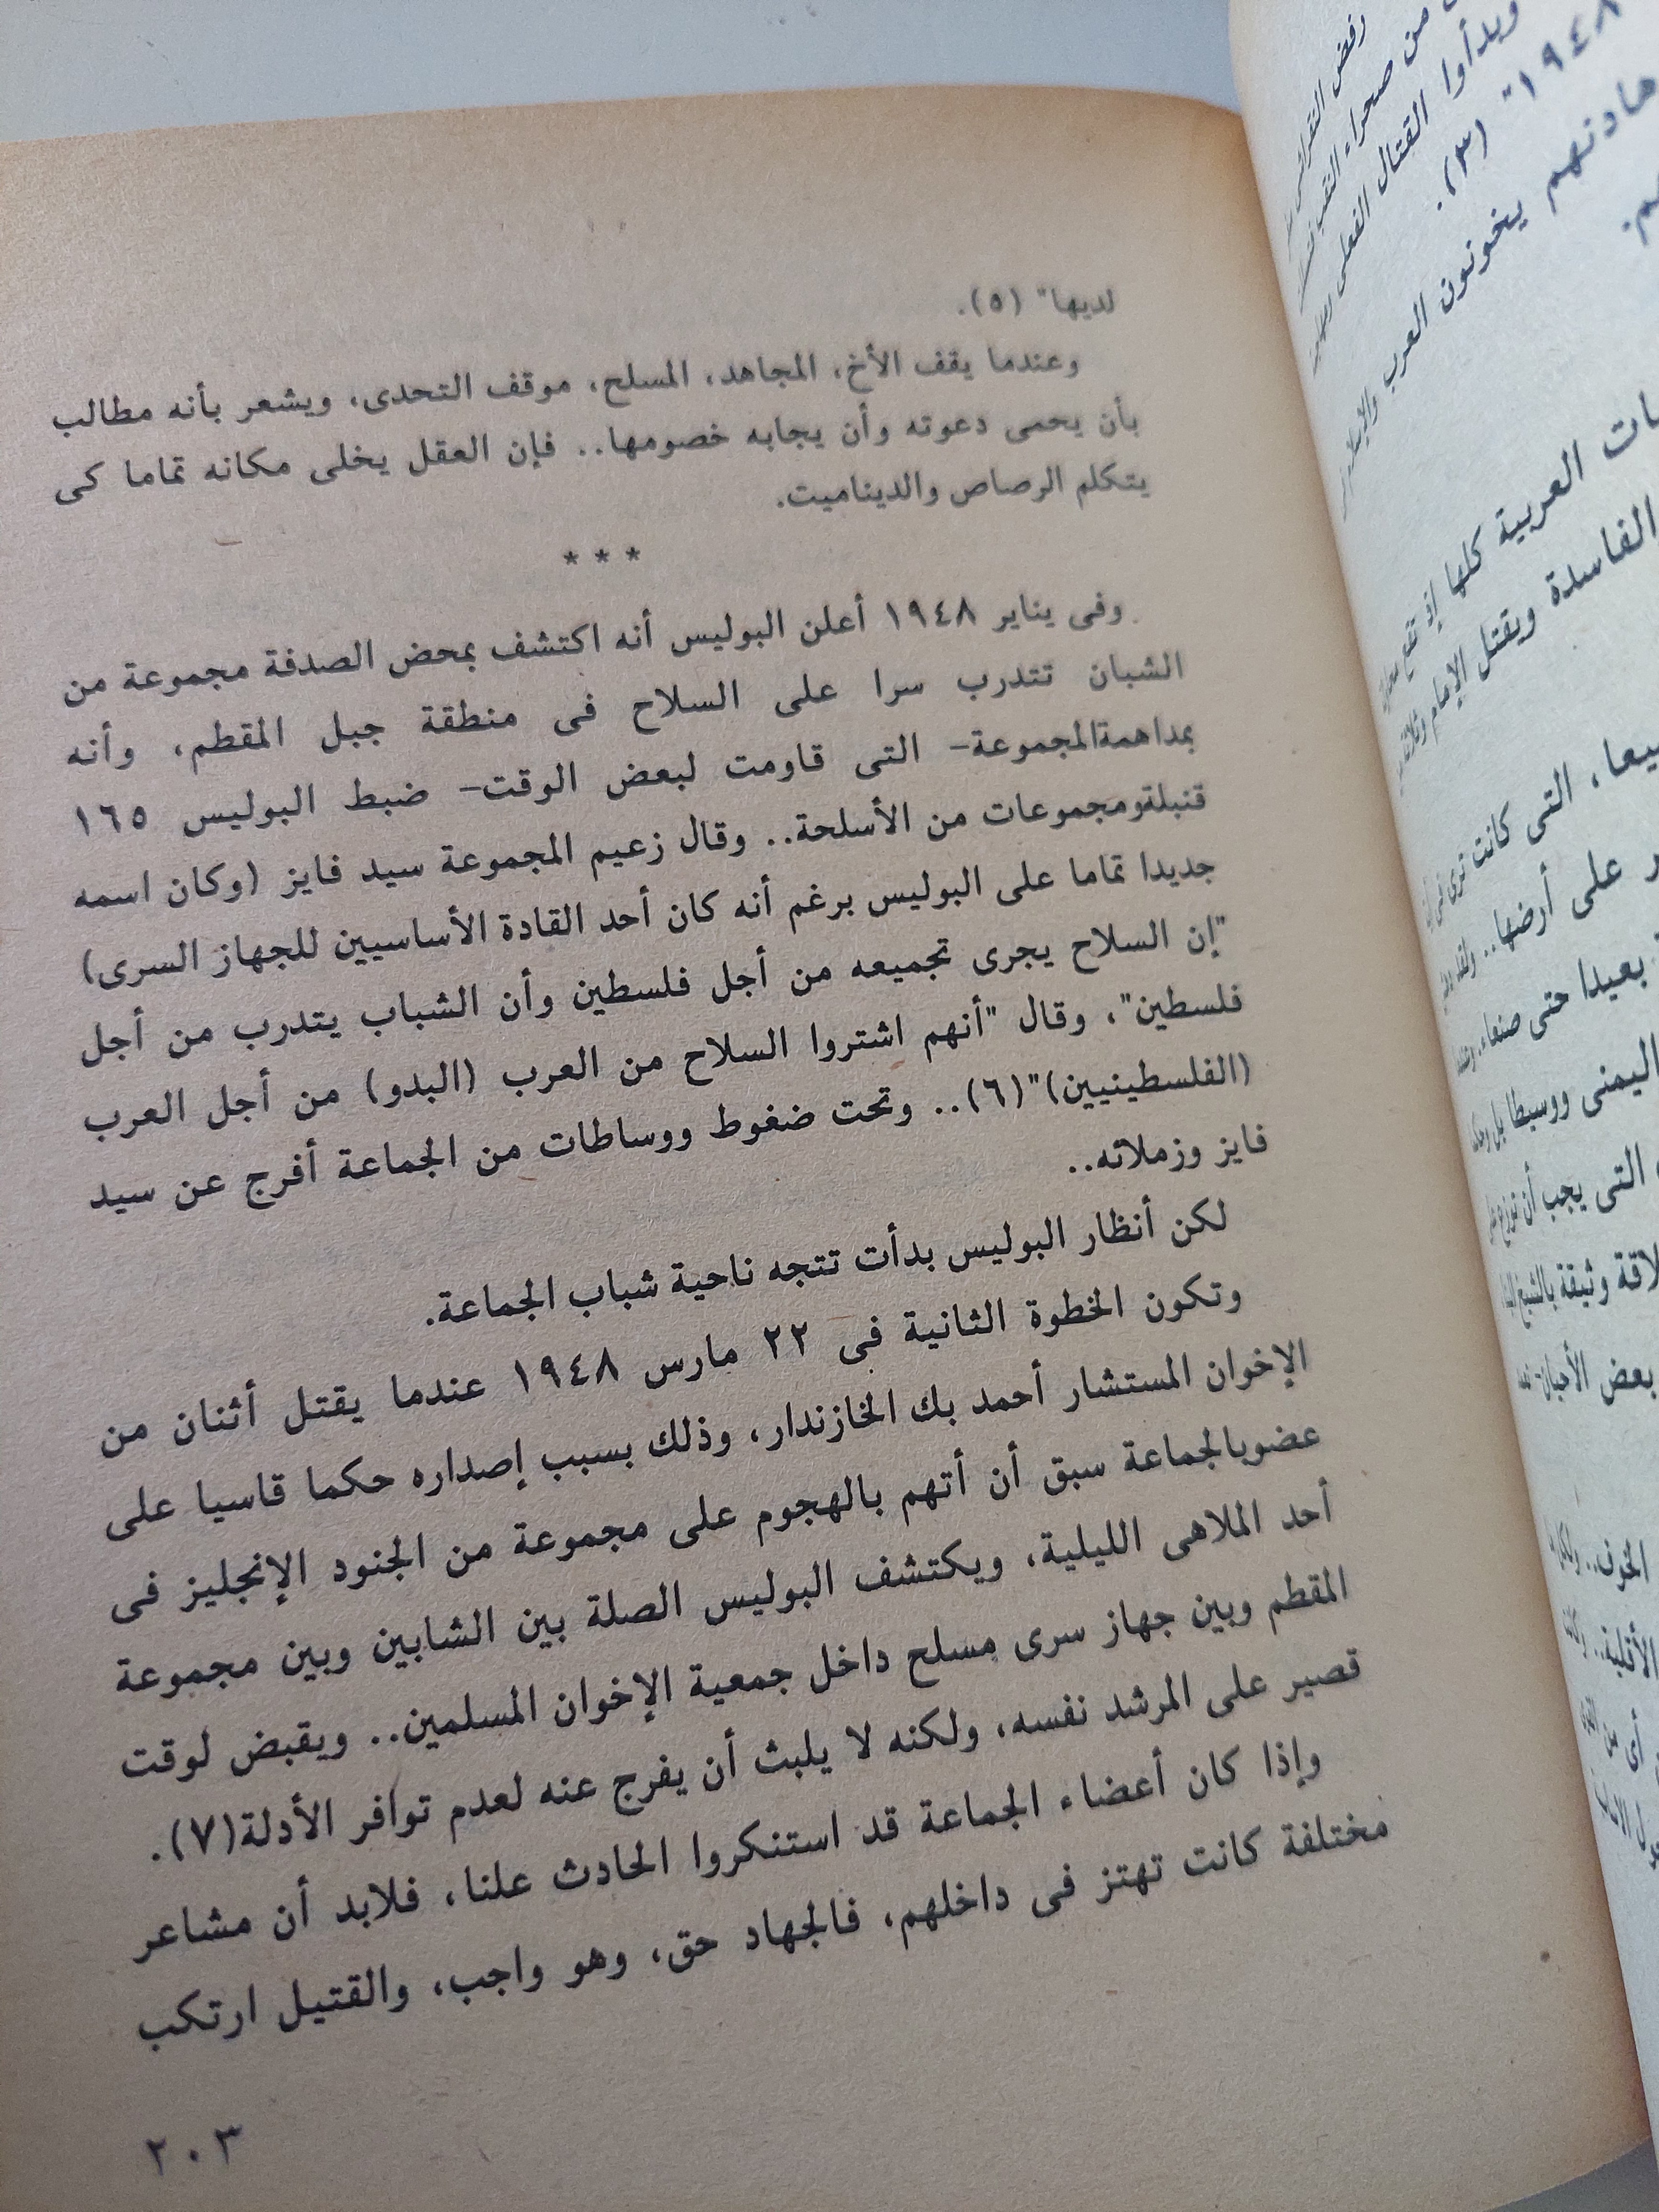 لديها" (٥).
وعندما يقف الأخ، المجاهد، المسلح، موقف التحدى، ويشعر بأنه مطالب
بأن يحمى دعوته وأن يجابه خصومها.. فإن العقل يخلى مكانه تماما كى
يتكلم الرصاص والديناميت.
* * *
وفى يناير ١٩٤٨ أعلن البوليس أنه اكتشف بمحض الصدفة مجموعة من
الشبان تتدرب سرا على السلاح فى منطقة جبل المقطم، وأنه
بمداهمةالمجموعة- التى قاومت لبعض الوقت- ضبط البوليس ١٦٥
قنبلةومجموعات من الأسلحة.. وقال زعيم المجموعة سيد فايز (وكان اسمه
جديدا تماما على البوليس برغم أنه كان أحد القادة الأساسيين للجهاز السرى)
"إن السلاح يجرى تجميعه من أجل فلسطين وأن الشباب يتدرب من أجل
فلسطين"، وقال "أنهم اشتروا السلاح من العرب (البدو) من أجل العرب
(الفلسطينيين)"(٦).. وتحت ضغوط ووساطات من الجماعة أفرج عن سيد
فايز وزملائه..
لكن أنظار البوليس بدأت تتجه ناحية شباب الجماعة.
وتكون الخطوة الثانية فى ٢٢ مارس ١٩٤٨ عندما يقتل أثنان من
الإخوان المستشار أحمد بك الخازندار، وذلك بسبب إصداره حكما قاسيا على
عضوبالجماعة سبق أن أتهم بالهجوم على مجموعة من الجنود الإنجليز فى
أحد الملاهى الليلية، ويكتشف البوليس الصلة بين الشابين وبين مجموعة
المقطم وبين جهاز سرى مسلح داخل جمعية الإخوان المسلمين.. ويقبض لوقت
قصير على المرشد نفسه، ولكنه لا يلبث أن يفرج عنه لعدم توافر الأدلة(٧).
وإذا كان أعضاء الجماعة قد استنكروا الحادث علنا، فلابد أن مشاعر
مختلفة كانت تهتز فى داخلهم، فالجهاد حق، وهو واجب، والقتيل ارتكب
٢٠٣
من صحراء النقب
وبدأوا القتال الفعلى
١٩٤٨" (٣).
هادنهم يخونون العرب
العربية كلها إذ
الفاسدة ويقتل الإمام
التى كانت ترى
على أرضها..
بعيدا حتى صنعاء
اليمنى ووسيطا
التى يجب أن توزع
وثيقة بالشيخ
بعض الأحيان-
الخوف..
الأقلية..
أى من